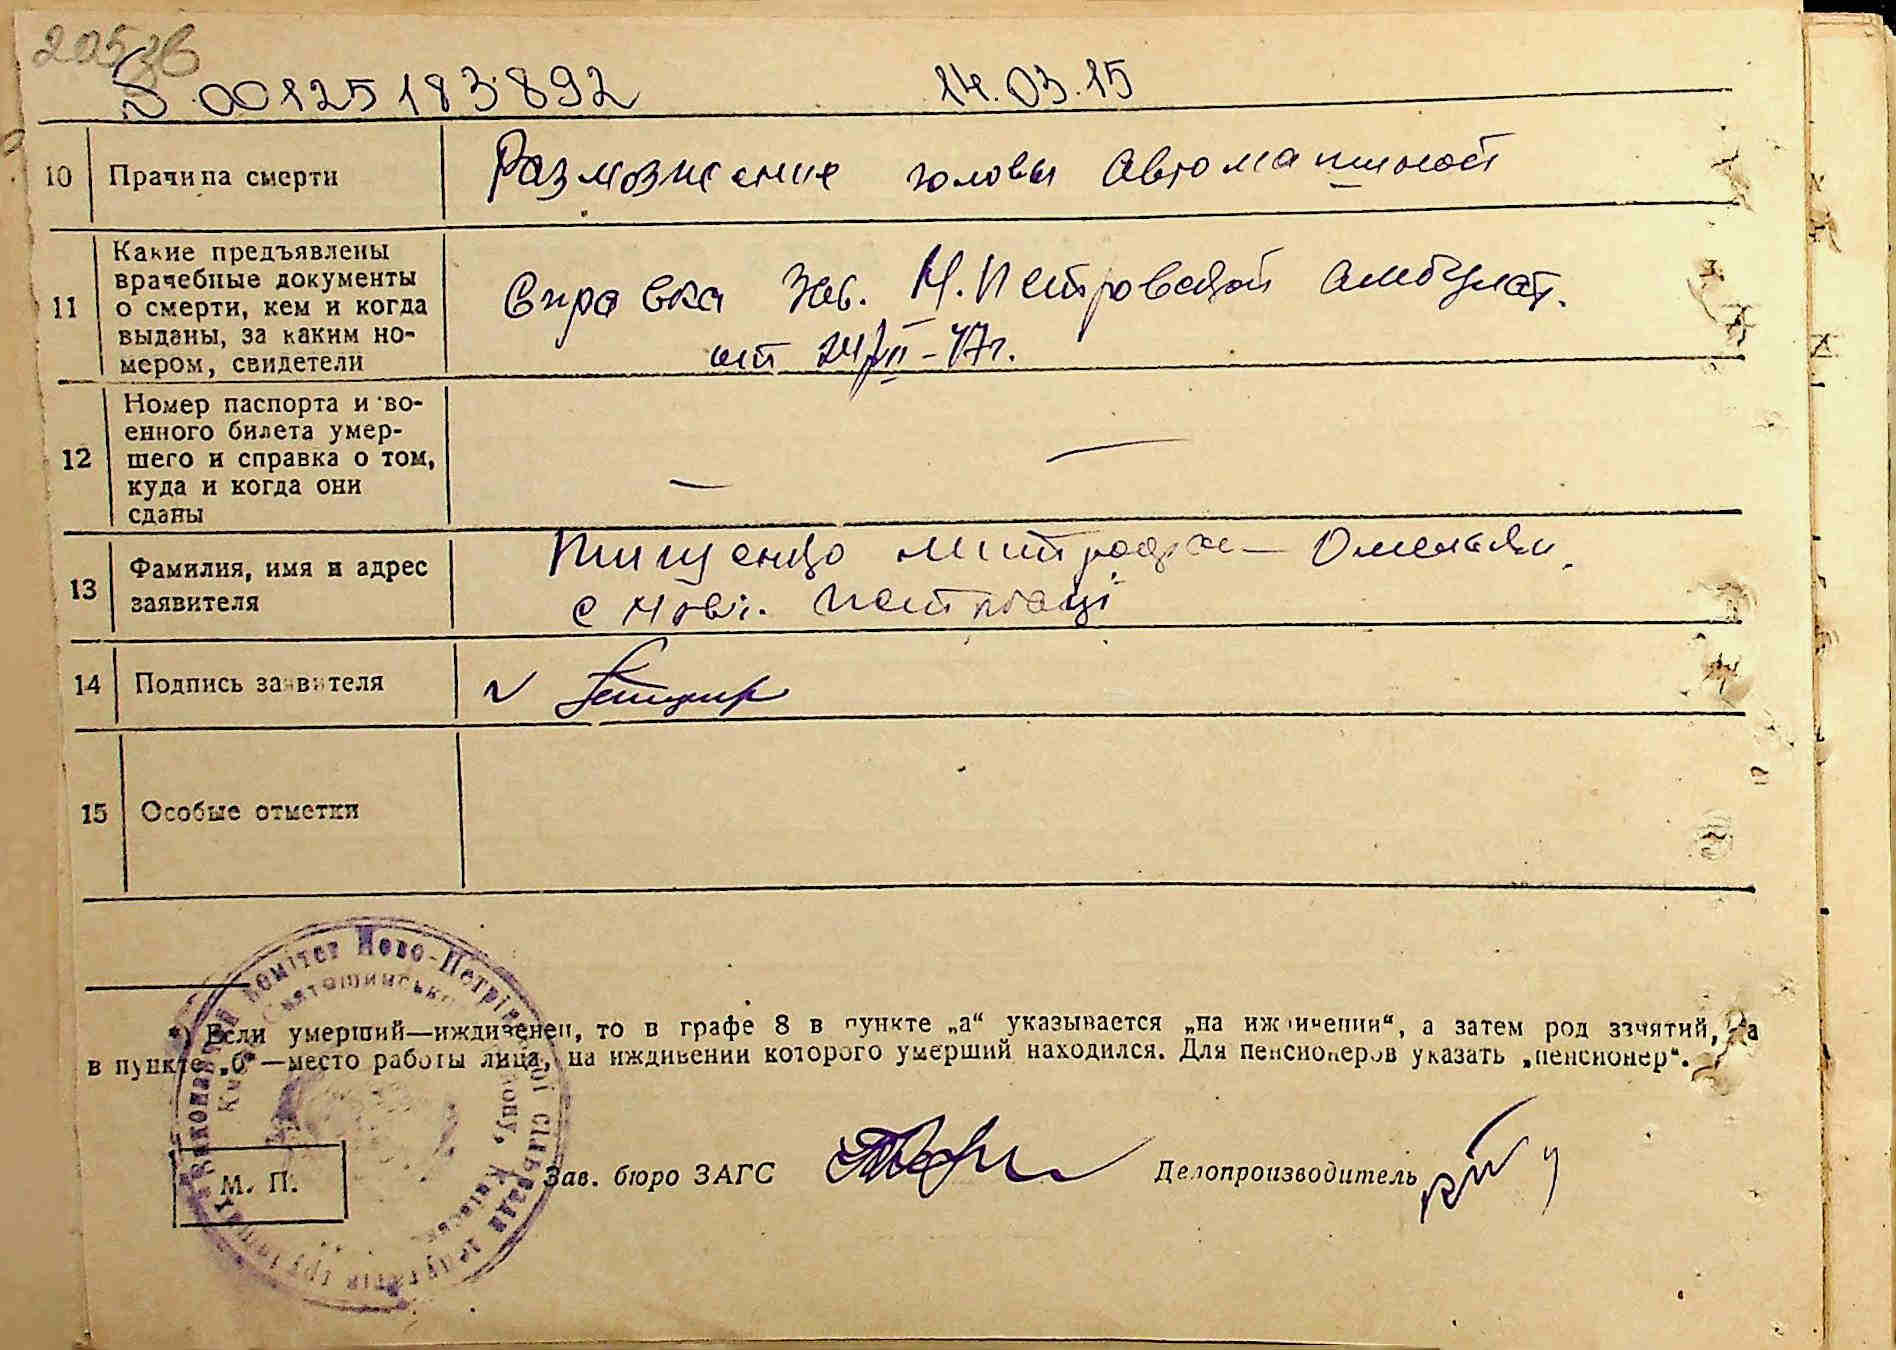 205зв
00125183892 14.03.15
10 Причина смерти Размозжение головы автомашиной
11 Какие предъявлены
врачебные документы
о смерти, кем и когда
выданы, за каким но-
мером, свидетели
Справка Зав. Н.Петровской амбулат.
от 24/II-47г.
12 Номер паспорта и во-
енного билета умер-
шего и справка о том,
куда и когда они
сданы
— —
13 Фамилия, имя и адрес
заявителя
Тищенко Омельян
с Нові. Петрівці
14 Подпись заявителя
15 Особые отметки
*) Если умерший—иждивенец, то в графе 8 в пункте „а“ указывается „на иждивении“, а затем род занятий, а
в пункте „б“—место работы лица, на иждивении которого умерший находился. Для пенсионеров указать „пенсионер“.
М. П. Зав. бюро ЗАГС Делопроизводитель
комітет Ново-Петрівської сільради депутатів трудящих
Святошинського району, Київськ